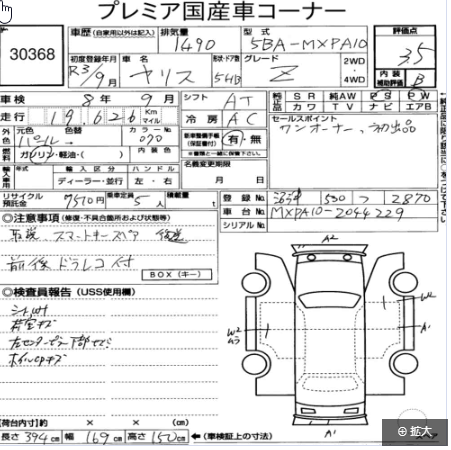 プレミア国産車コーナー
30368
車歴 (自家用以外は記入)
排気量
1490
型式
5BA-MXPA10
評価点
3.5
初度登録年月
R3/9月
車名
ヤリス
形状・ドア数
5HB
グレード
Z
2WD・4WD
内装
補助評価
B
車検
8年9月
シフト
AT
純正品
SR
純AW
PS
PW
カワ
TV
ナビ
エアB
走行
19,626
Km
マイル
冷房
AC
セールスポイント
ワンオーナー、初出品
外色
元色
色替
カラーNo.
070
パール
新車整備手帳
(保証書付)
有・無
燃料
ガソリン・軽油・( )
内装色
名義変更期限
月 日
輸入車用
年式
輸入車
ハンドル
ディーラー・並行
左・右
リサイクル預託金
7510円
乗車定員
5人
積載量
t
登録No.
530
つ
2870
車台No.
MXPA10-2044229
シリアルNo.
◎注意事項 (修復・不具合箇所および状態等)
取説、スマートキースペア 後送
前後ドラレコ付
BOX (キー)
◎検査員報告 (USS使用欄)
シートスレ
荷室キズ
ホイールCPキズ
A2
W2
A1
W2
A1
【荷台内寸】約 × × (cm)
長さ 394cm
幅 169cm
高さ 150cm
←(車検証上の寸法)
拡大